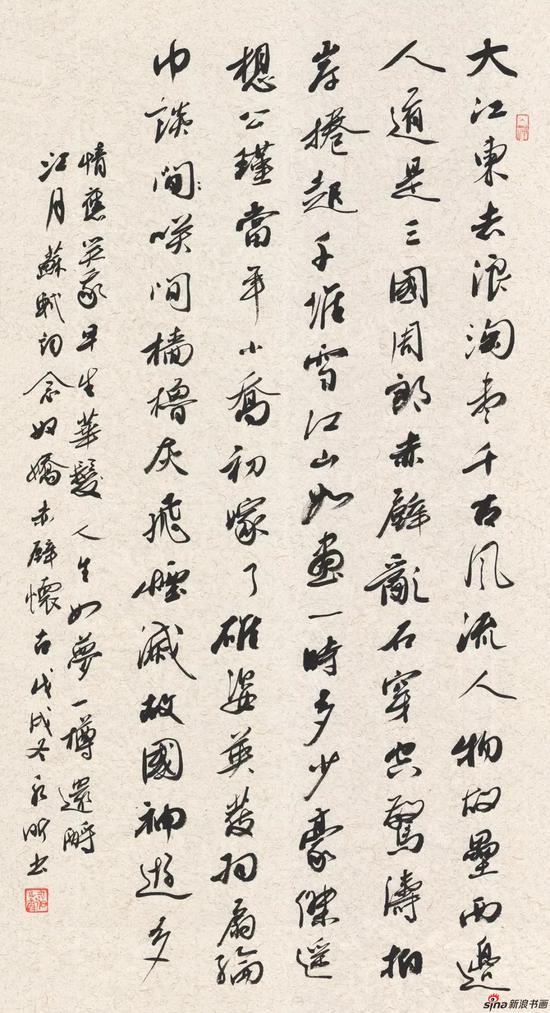 大江東去浪淘盡千古風流人物故壘西邊
人道是三國周郎赤壁亂石穿空驚濤拍
岸捲起千堆雪江山如畫一時多少豪傑遥
想公瑾當年小喬初嫁了雄姿英發羽扇綸
巾談間咲間檣櫓灰飛煙滅故國神遊多
情應笑我早生華髮人生如夢一樽還酹
江月蘇軾詞念奴嬌赤壁懷古戊戌冬永書
sina新浪书画